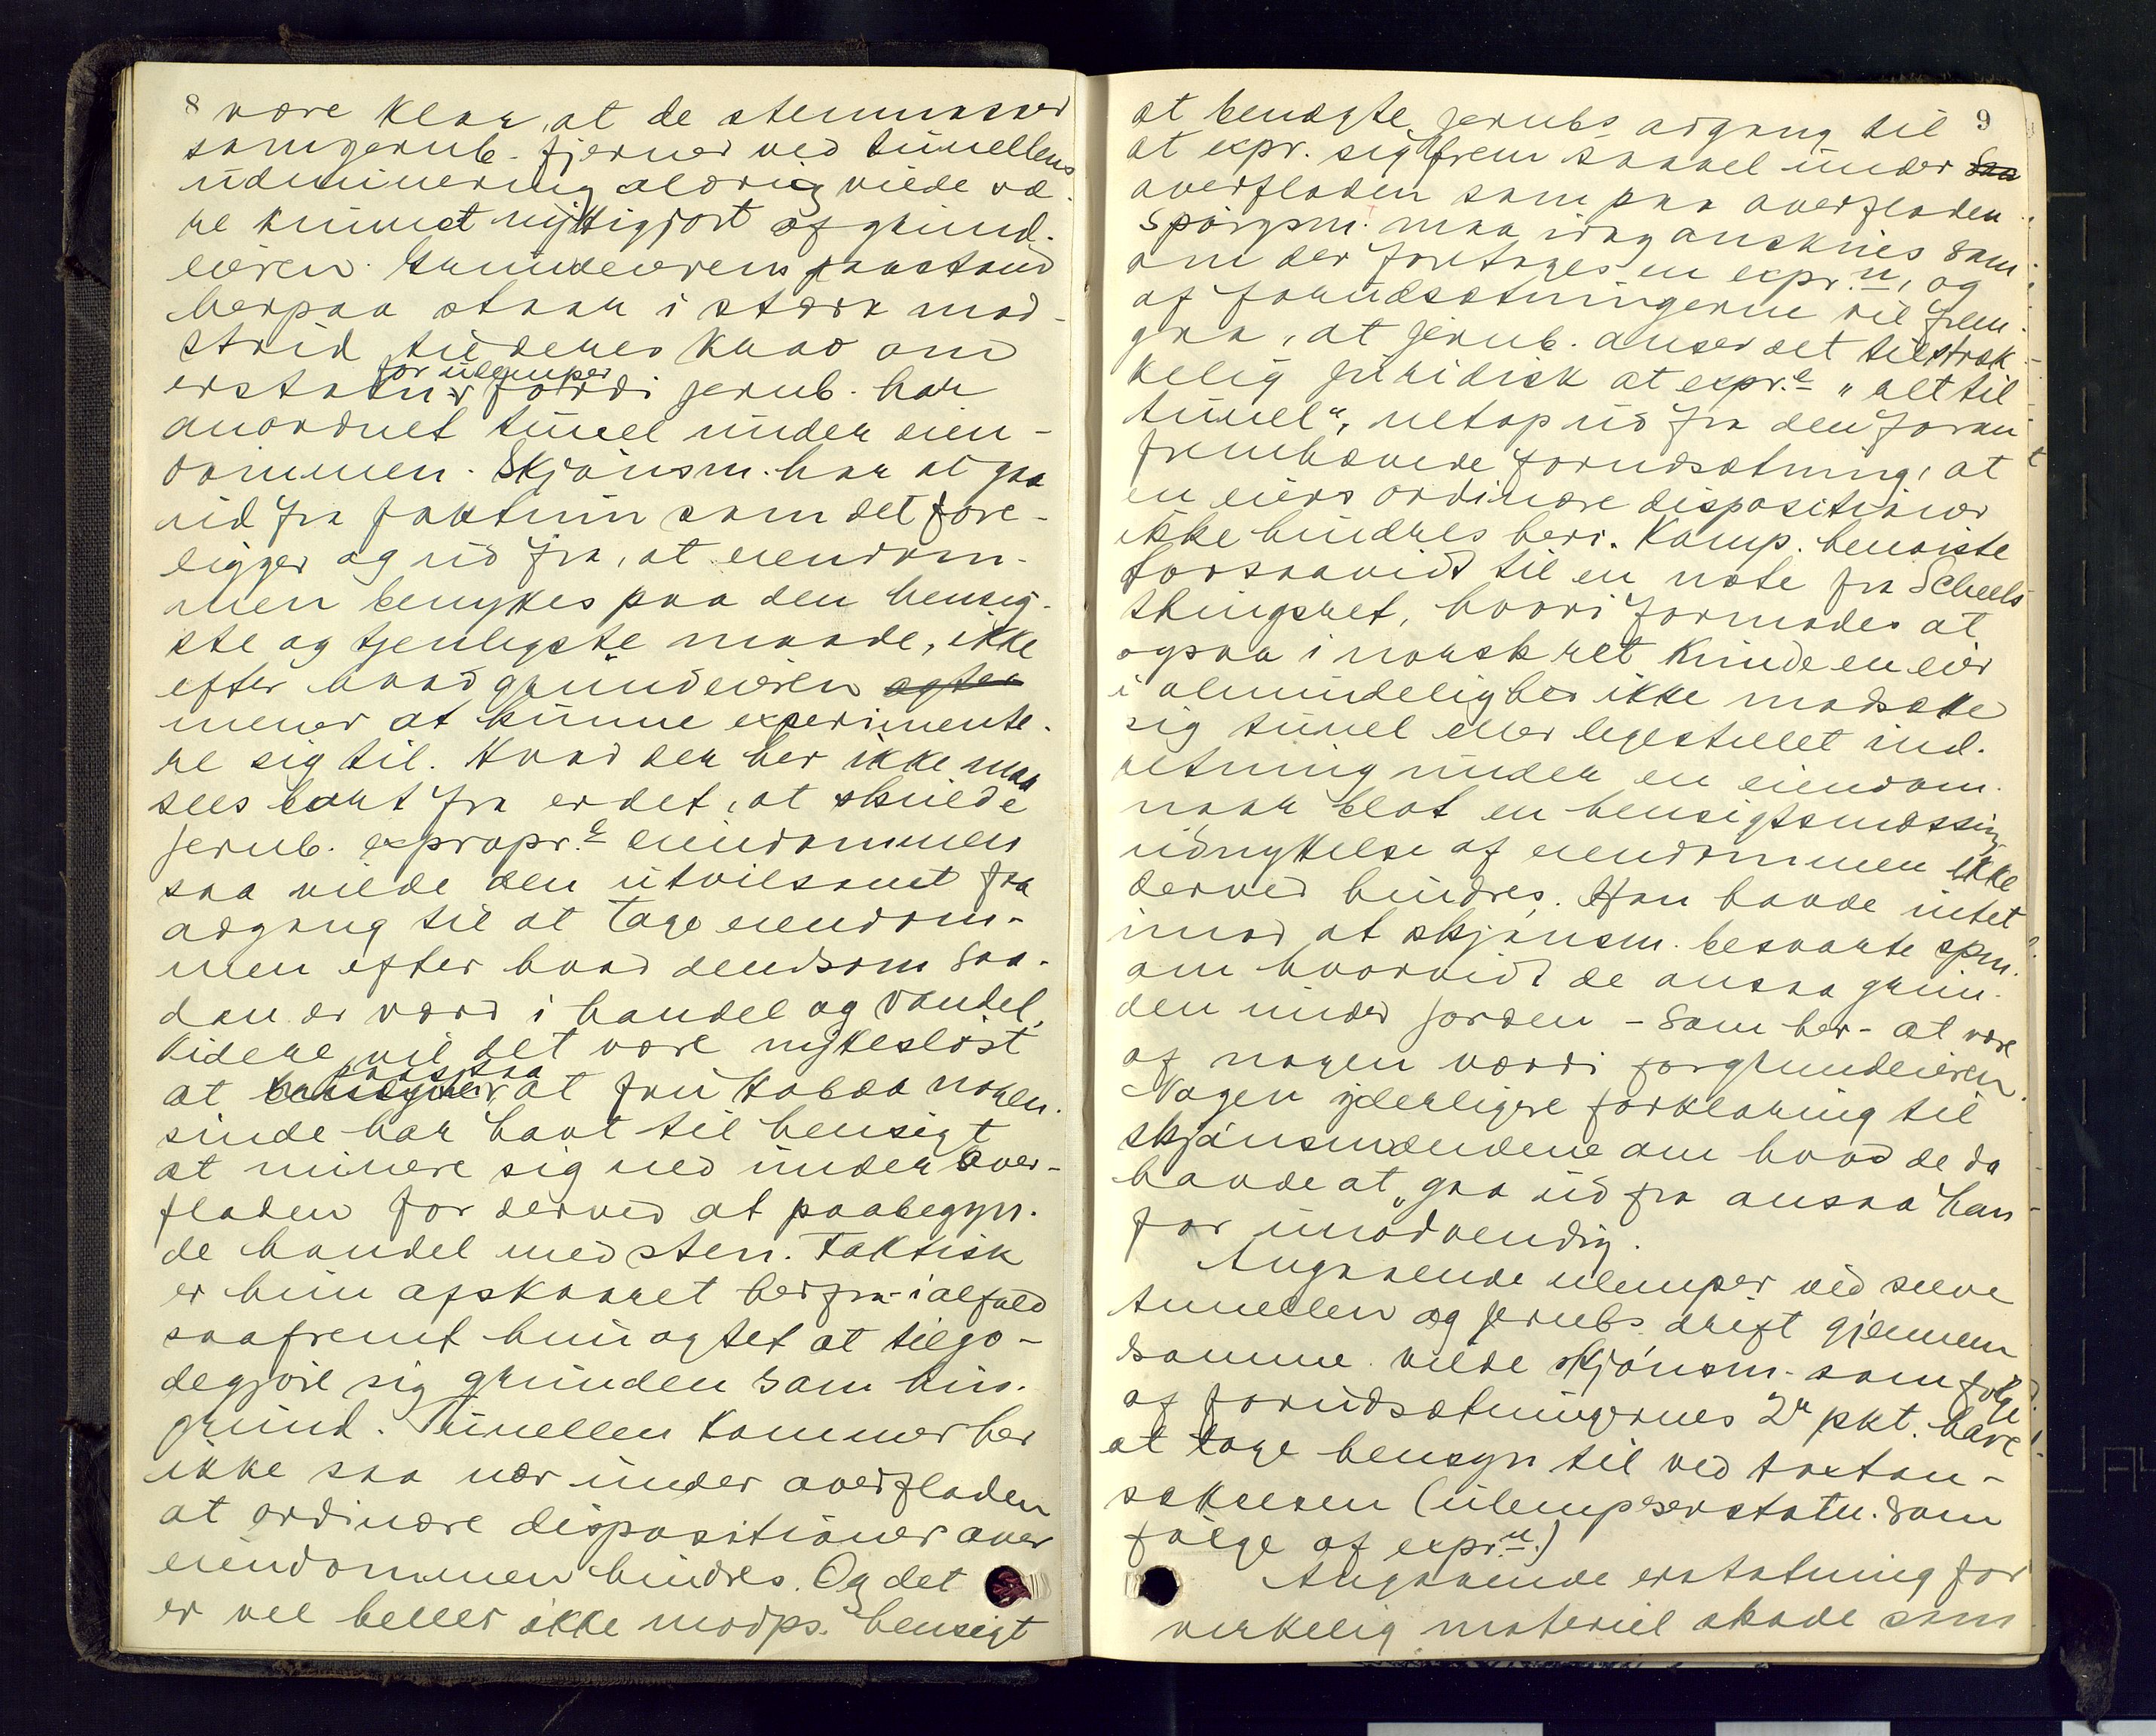 8
være klar, at de stenmasser
som jernb. fjerner ved tunellens
udminering aldrig vilde væ-
re kunnet nyttigjort af grund-
eieren. Grundeierens paastand
herpaa staar i stærk mod-
strid til deres krav om
for ulemper
erstatn. fordi jernb. har
anordnet tunel under eien-
dommen. Skjönsm. har at gaa
ud fra faktum som det fore-
ligger og ud fra, at eiendom-
men benyttes paa den hensig-
ste og tjenligste maade, ikke
efter hvad grundeieren agter
mener at kunne experimente-
re sig til. Hvad der her ikke maa
sees bort fra er det, at skulde
jernb. expropr.e eiendommen
saa vilde den utvilsomt faa
adgang til at tage eiendom-
men efter hvad den som saa-
dan er værd i handel og vandel.
Videre vil det være nytteslöst
paastaa
at at fru Kobda nogen-
sinde har havt til hensigt
at minere sig ned under over-
fladen for derved at paabegyn-
de handel med sten. Faktisk
er hun afskaaret herfra - ialfald
saafremt hun agtet at tilgo-
degjöre sig grunden som hus-
grund. Tunellen kommer her
ikke saa nær under overfladen
at ordinære dispositioner over
eiendommen hindres. Og det
er vel heller ikke modps. hensigt
9
at benægte jernbs adgang til
at expr. sig frem saavel under saa
overfladen som paa overfladen.
Spörgsm. maa idag ansknes som
om der foretages en expr.n, og
af forudsætningerne vil frem-
gaa, at jernb. anser det tilstræk-
kelig juridisk at expr.e "ret til
tunel", netop ud fra den foran
fremhævede forudsætning, at
en eiers ordinære dispositioner
ikke hindres heri. Komp. henviste
forsaavidt til en note fra Scheels
thingsret, hvori formodes at
ogsaa i norsk ret kunde en eier
i almindelighed ikke modsætte
sig tunel eller ligestillet ind-
retning under en eiendom
naar blot en hensigtsmæssig
udnyttelse af eiendommen ikke
derved hindres. Han havde intet
imod at skjönsm. besvarte spm.
om hvorvidt de ansaa grun-
den under jorden - som her - at være
af nogen værdi for grundeieren.
Nogen yderligere forklaring til
skjönsmændene om hvad de da
havde at "gaa ud fra ansaa han
for unödvendig.
Angaaende ulemper ved selve
tunellen og jernbs drift gjennem
samme vilde skjönsm. som fölge
af forudsætningernes 2n pkt. have
at tage hensyn til ved taxtan-
sættelsen (ulempeserstatn. som
fölge af expr.n.)
Angaaende erstatning for
virkelig materiel skade som